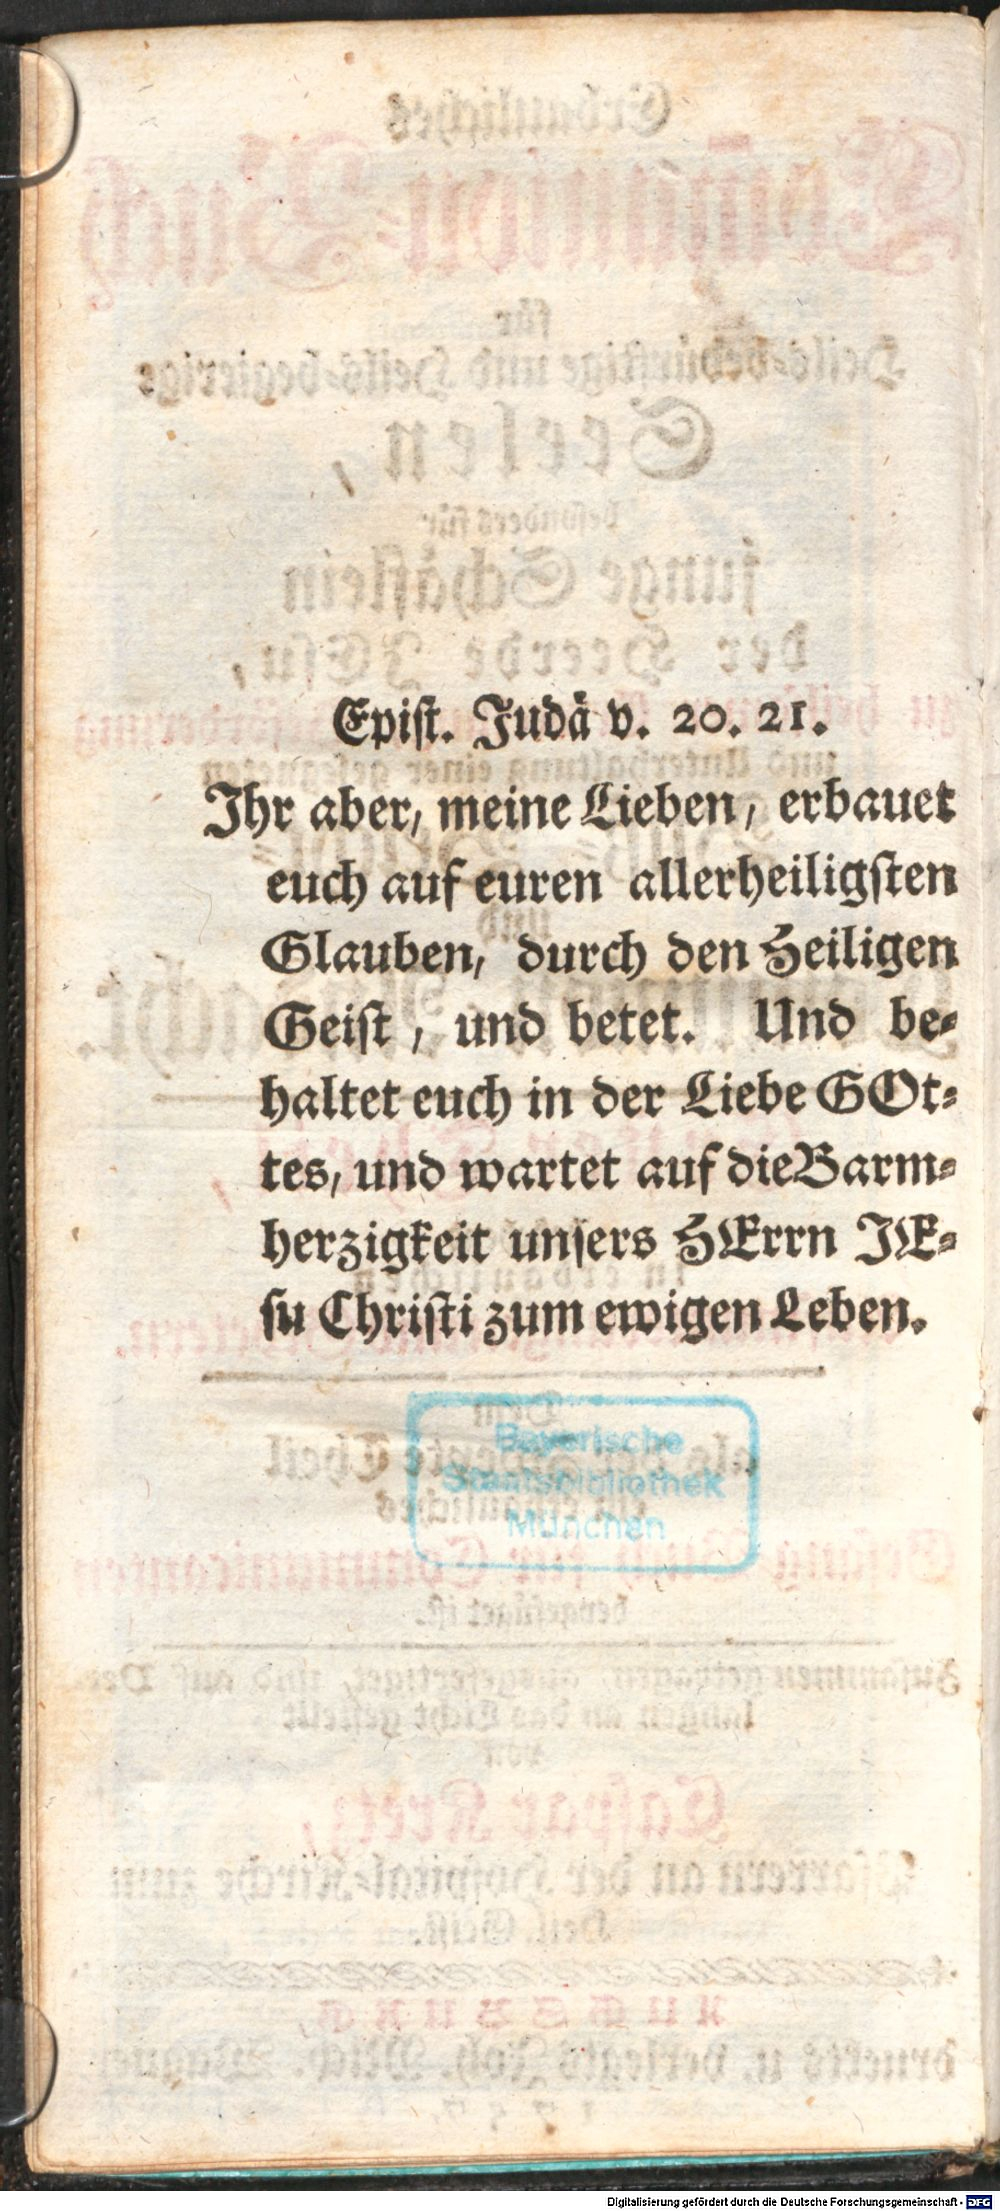 Epist. Judä v. 20. 21.
Ihr aber, meine Lieben, erbauet
euch auf euren allerheiligsten
Glauben, durch den Heiligen
Geist, und betet. Und be-
haltet euch in der Liebe GOt-
tes, und wartet auf die Barm-
herzigkeit unsers HErrn JE-
su Christi zum ewigen Leben.
Bayerische
Staatsbibliothek
München
Digitalisierung gefördert durch die Deutsche Forschungsgemeinschaft - DFG